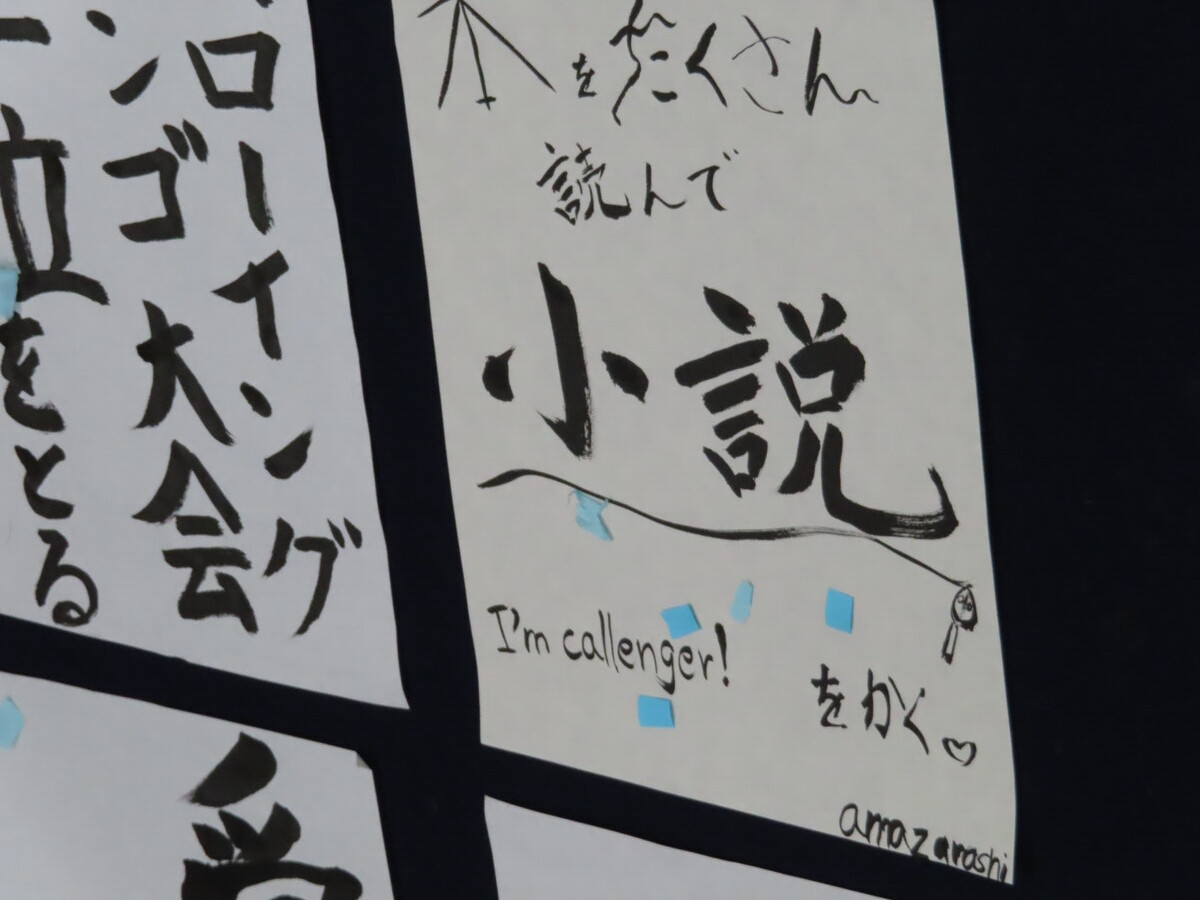 本をたくさん
読んで
小説
I'm callenger!
をかく♡
amazarashi
ローイング
ンゴ大会
位をとる